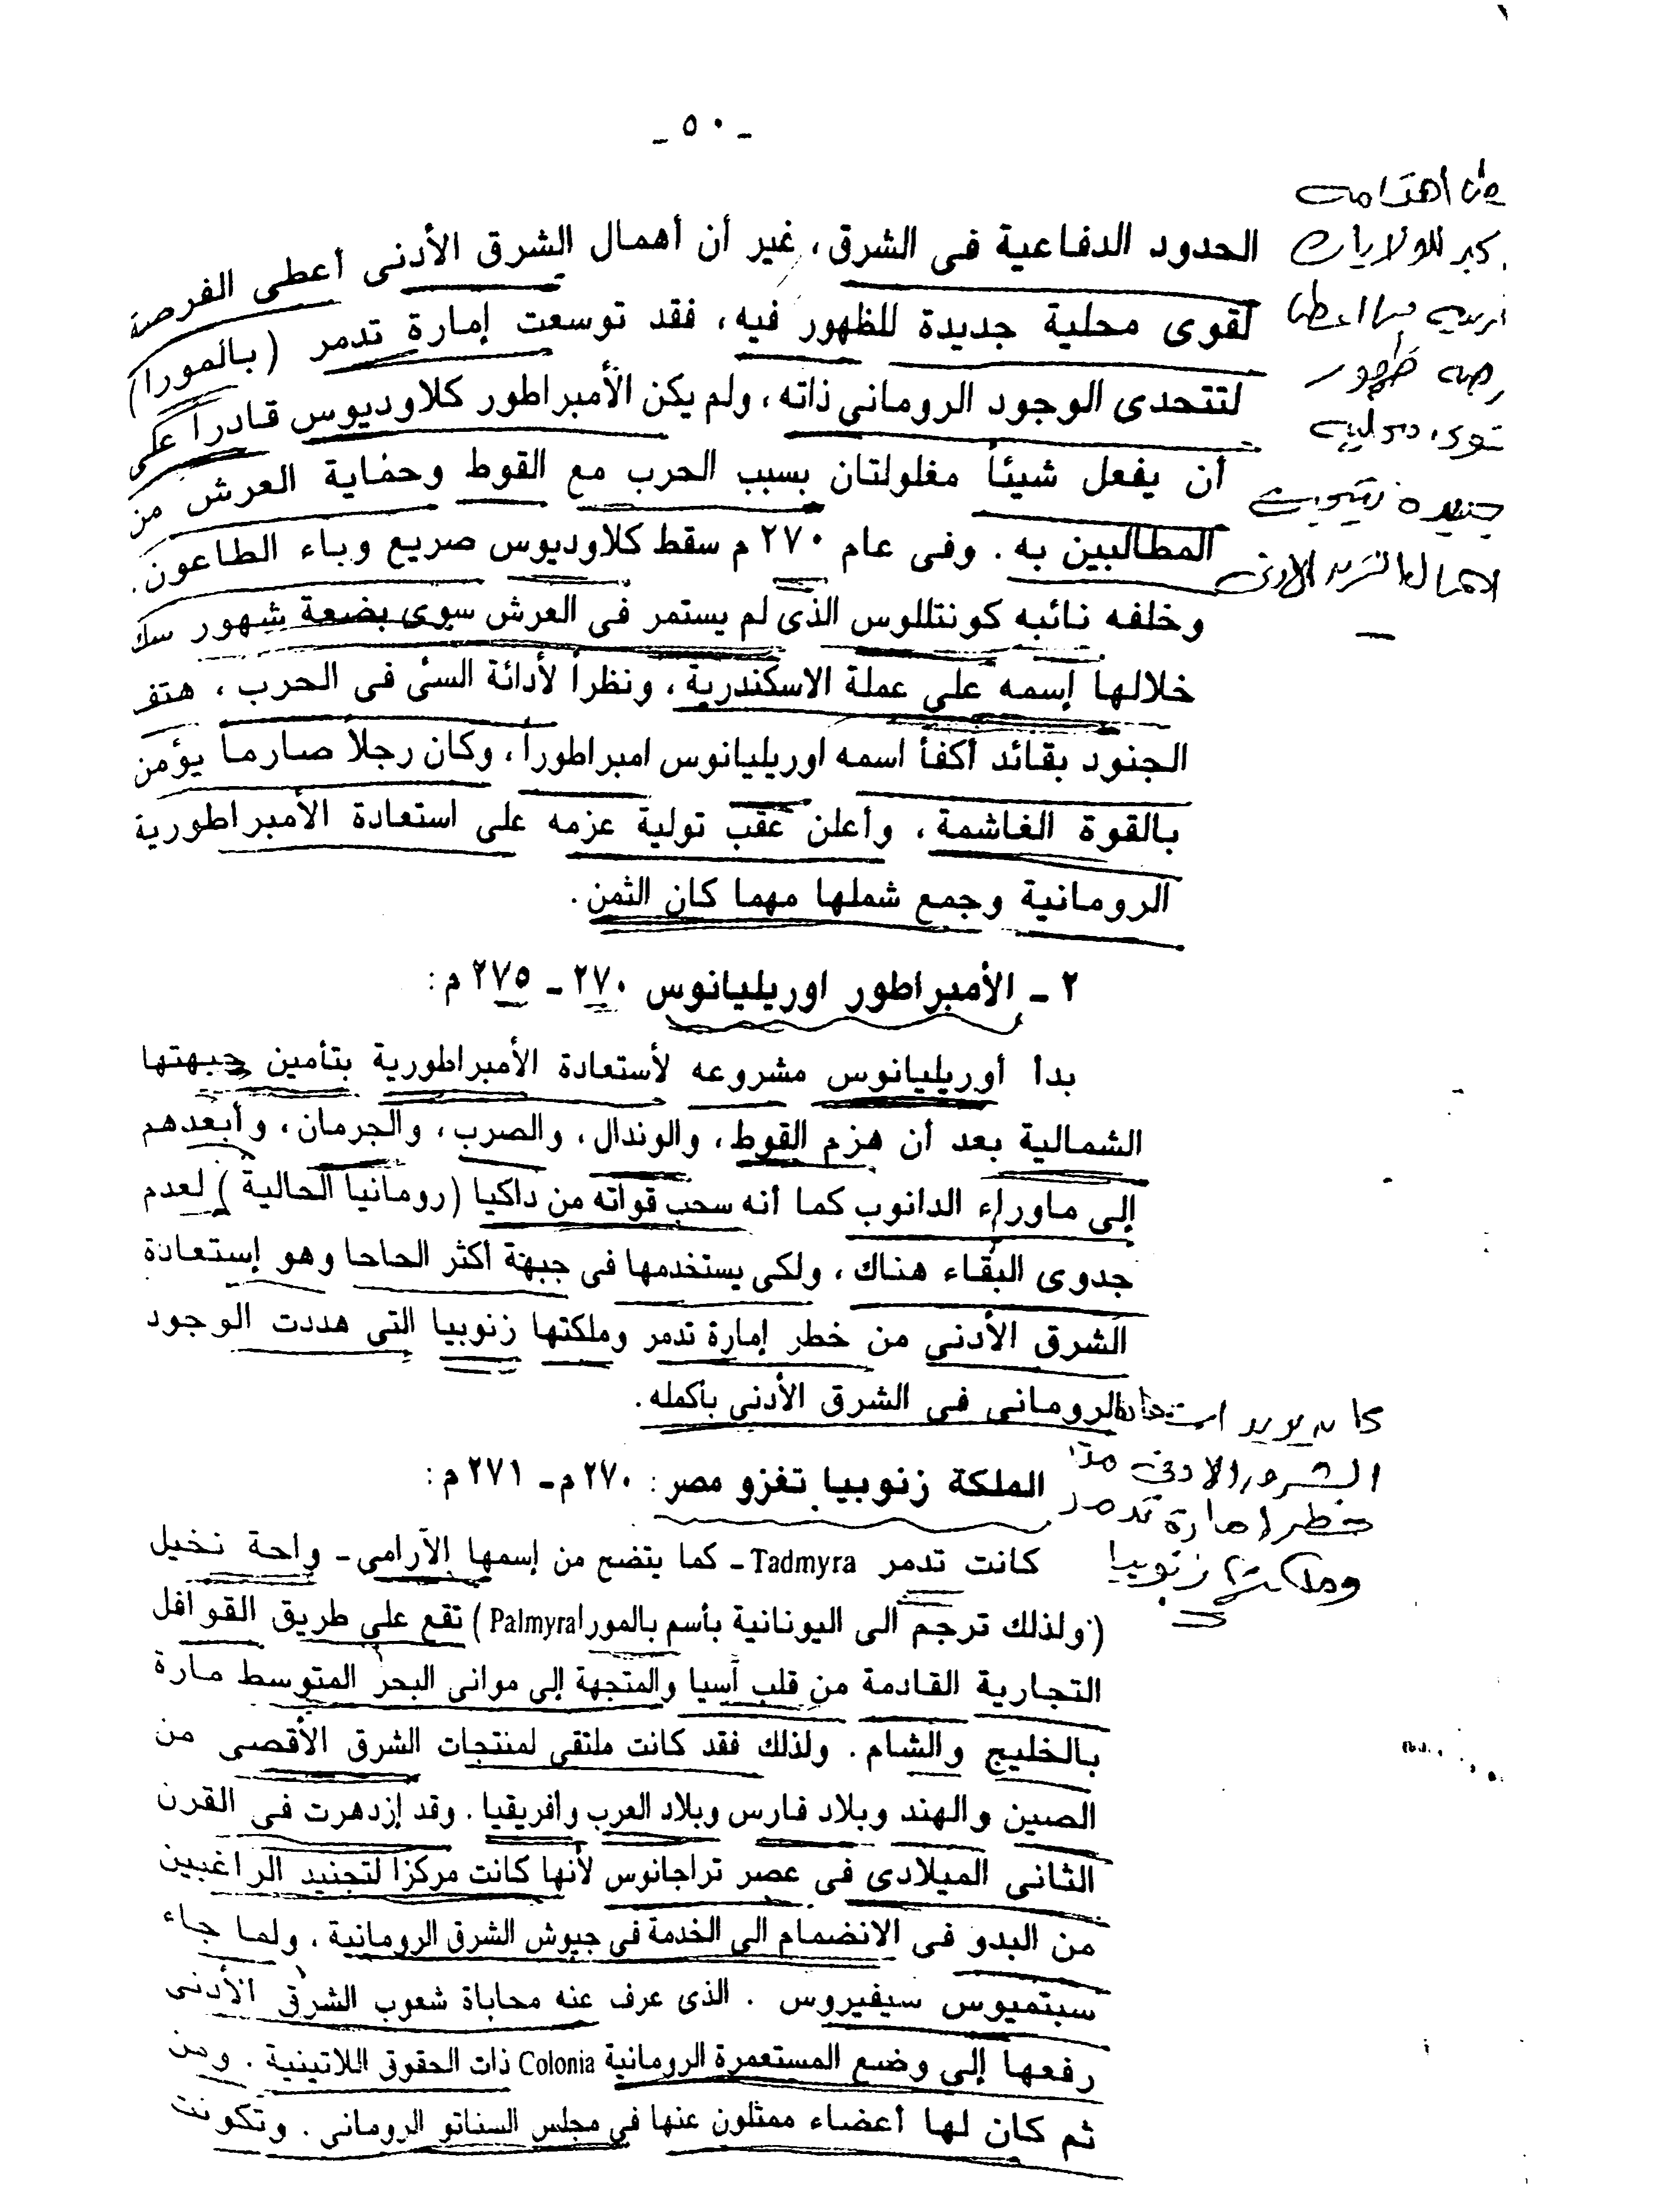 ـ ٥٠ ـ
الحدود الدفاعية فى الشرق، غير أن أهمال الشرق الأدنى أعطى الفرصة
لقوى محلية جديدة للظهور فيه، فقد توسعت إمارة تدمر (بالمورا)
لتتحدى الوجود الرومانى ذاته، ولم يكن الأمبراطور كلاوديوس قادراً على
أن يفعل شيئاً مغلولتان بسبب الحرب مع القوط وحماية العرش من
المطالبين به. وفى عام ٢٧٠ م سقط كلاوديوس صريع وباء الطاعون.
وخلفه نائبه كونتللوس الذى لم يستمر فى العرش سوى بضعة شهور سك
خلالها إسمه على عملة الاسكندرية، ونظراً لأدائة السئ فى الحرب، هتف
الجنود بقائد أكفأ اسمه اوريليانوس امبراطوراً، وكان رجلاً صارماً يؤمن
بالقوة الغاشمة، وأعلن عقب تولية عزمه على استعادة الأمبراطورية
الرومانية وجمع شملها مهما كان الثمن.
٢ ـ الأمبراطور اوريليانوس ٢٧٠ ـ ٢٧٥ م:
بدأ أوريليانوس مشروعه لأستعادة الأمبراطورية بتأمين جبهتها
الشمالية بعد أن هزم القوط، والوندال، والصرب، والجرمان، وأبعدهم
إلى ماوراء الدانوب كما أنه سحب قواته من داكيا (رومانيا الحالية) لعدم
جدوى البقاء هناك، ولكى يستخدمها فى جبهة أكثر الحاحا وهو إستعادة
الشرق الأدنى من خطر إمارة تدمر وملكتها زنوبيا التى هددت الوجود
الرومانى فى الشرق الأدنى بأكمله.
الملكة زنوبيا تغزو مصر: ٢٧٠ م ـ ٢٧١ م:
كانت تدمر Tadmyra ـ كما يتضح من إسمها الآرامى ـ واحة نخيل
(ولذلك ترجم الى اليونانية بأسم بالمورا Palmyra) تقع على طريق القوافل
التجارية القادمة من قلب أسيا والمتجهة إلى موانى البحر المتوسط مارة
بالخليج والشام. ولذلك فقد كانت ملتقى لمنتجات الشرق الأقصى من
الصين والهند وبلاد فارس وبلاد العرب وافريقيا. وقد إزدهرت فى القرن
الثانى الميلادى فى عصر تراجانوس لأنها كانت مركزا لتجنيد الراغبين
من البدو فى الانضمام الى الخدمة فى جيوش الشرق الرومانية، ولما جاء
سبتميوس سيفيروس. الذى عرف عنه محاباة شعوب الشرق الأدنى
رفعها إلى وضع المستعمرة الرومانية Colonia ذات الحقوق اللاتينية. ومن
ثم كان لها أعضاء ممثلون عنها فى مجلس السناتو الرومانى. وتكونت
أهتمامه
ظهور
جديدة نتيجة
كان يريد
الشرق الادنى من
خطر امارة تدمر
وملكتها زنوبيا